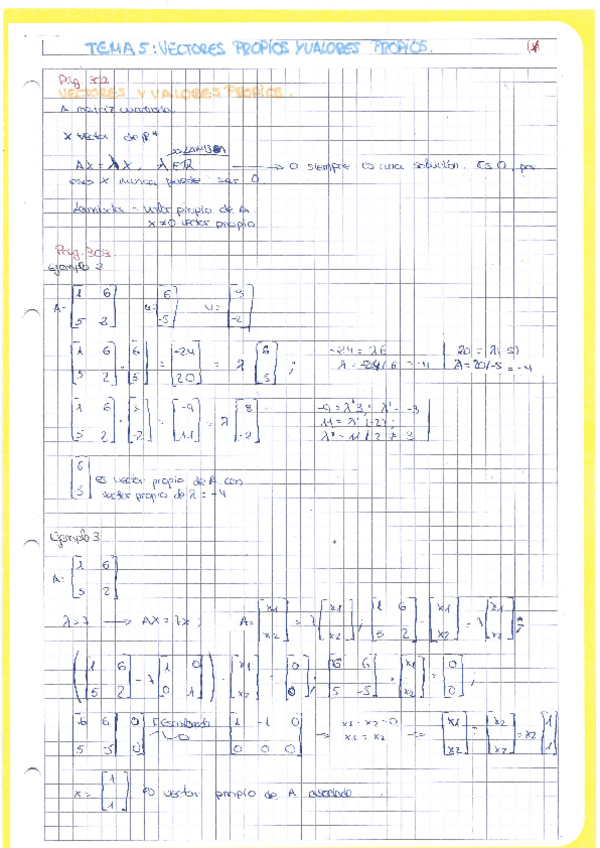 TEMA 5: VECTORES PROPIOS Y VALORES PROPIOS.
Pág. 302
VECTORES Y VALORES PROPIOS.
A matriz cuadrada
X vector de R^n
→ LAMBDA
AX = λX, λ ∈ R → 0 siempre es una solución. Es 0, por
eso X nunca puede ser 0
Lambda - valor propio de A
X ≠ 0 vector propio
Pág. 303
Ejemplo 2
A = [1 6; 5 2] u = [6; -5] v = [3; -2]
[1 6; 5 2] · [6; 5] = [-24; 20] = λ [6; 5] ; -24 = λ6 | 20 = λ(-5)
λ = -24/6 = -4 | λ = 20/-5 = -4
[1 6; 5 2] · [3; -2] = [-9; 11] = λ [3; -2] -9 = λ'3; λ' = -3
11 = λ' (-2);
[6; 5] es vector propio de A con
vector propio de λ = -4
Ejemplo 3
A: [1 6; 5 2]
λ = 7 → AX = 7X ; A = [x1; x2] = 7 [x1; x2] ; [1 6; 5 2] · [x1; x2] = 7 [x1; x2] =
([1 6; 5 2] - 7 [1 0; 0 1]) · [x1; x2] = [0; 0] ; [-6 6; 5 -5] · [x1; x2] = [0; 0] ;
[-6 6 0; 5 -5 0] F. Escalonada [1 -1 0; 0 0 0] → x1 - x2 = 0
x1 = x2 → [x1; x2] = [x2; x2] = x2 [1; 1]
x = [1; 1] es vector propio de A asociado